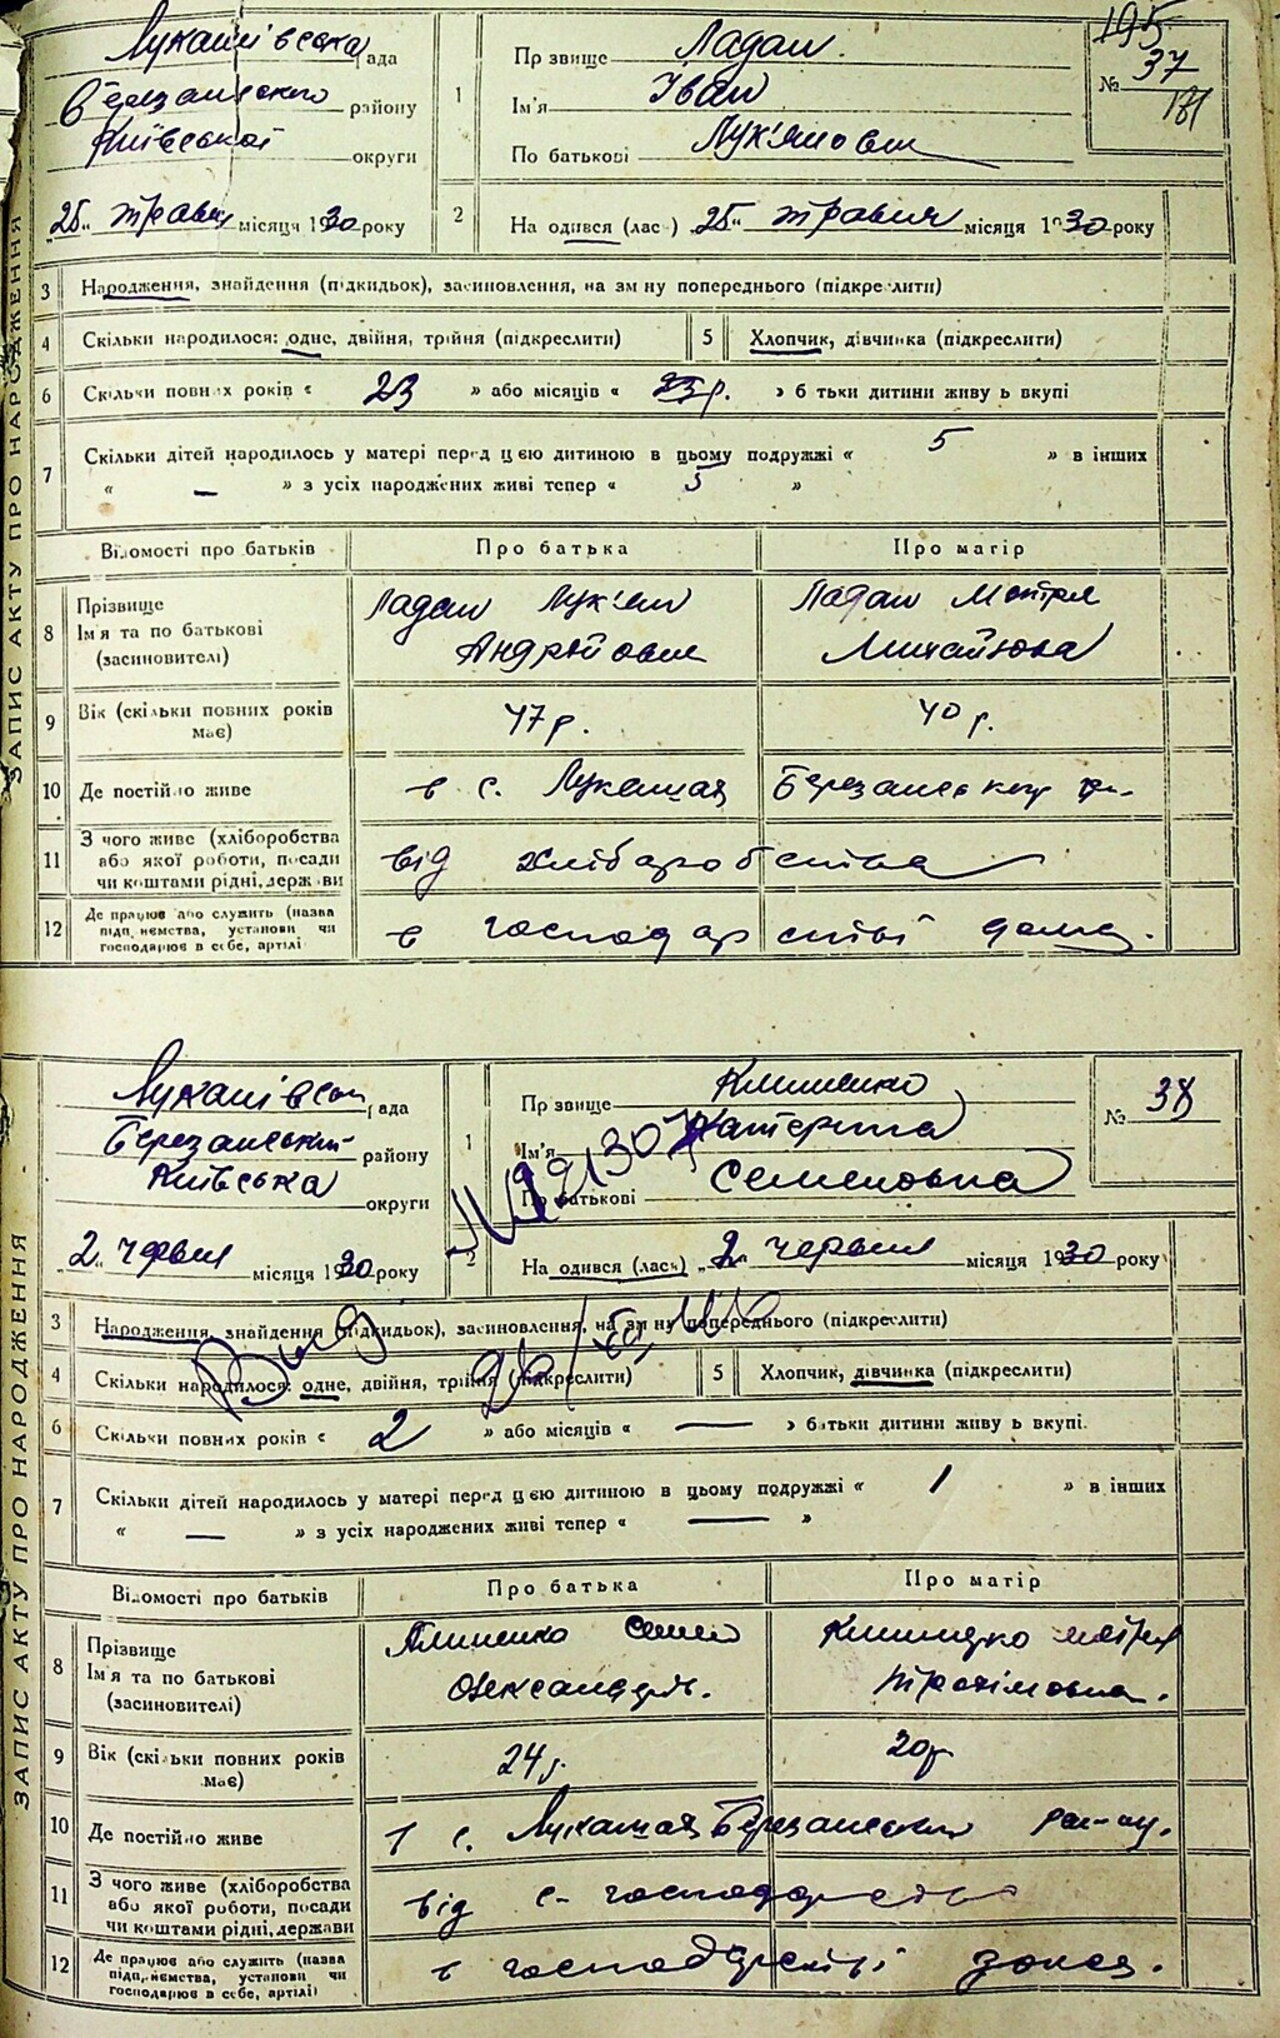 ЗАПИС АКТУ ПРО НАРОДЖЕННЯ
Лукашівська рада
Березанського району
Київської округи
„25“ травня місяця 1930 року
1
Прізвище Ладан
Ім'я Іван
По батькові Лук'янович
195
№ 37
181
2
На одився (лас ) „25“ травня місяця 1930 року
3 Народження, знайдення (підкидьок), засиновлення, на зм ну попереднього (підкреслити)
4 Скільки народилося: одне, двійня, трійня (підкреслити) 5 Хлопчик, дівчинка (підкреслити)
6 Скільки повних років « 23 » або місяців « 23 р. » б тьки дитини живу ь вкупі
7 Скільки дітей народилось у матері перед цією дитиною в цьому подружжі « 5 » в інших
« — » з усіх народжених живі тепер « 5 »
Відомості про батьків Про батька Про матір
8 Прізвище
Ім'я та по батькові
(засиновителі)
Ладан Лук'ян
Андрійович
Ладан Мотря
Михайлова
9 Вік (скільки повних років
має)
47 р. 40 р.
10 Де постійно живе в с. Лукашах Березанськог р-
11 З чого живе (хліборобства
або якої роботи, посади
чи коштами рідні, держ ви
від хліборобства
12 Де працює або служить (назва
підп, иємства, установи чи
господарює в себе, артілі
в господарстві дома.
ЗАПИС АКТУ ПРО НАРОДЖЕННЯ
Лукашівськ рада
Березанський району
Київська округи
„2“ червня місяця 1930 року
1
Пр звище Клименко
Ім'я Катерина
По батькові Семеновна
№ 38
2
На одився (лась) „2“ червня місяця 1930 року
3 Народження, знайдення (підкидьок), засиновлення, на зм ну попереднього (підкреслити)
4 Скільки народилося: одне, двійня, трійня (підкреслити) 5 Хлопчик, дівчинка (підкреслити)
6 Скільки повних років « 2 » або місяців « — » батьки дитини живу ь вкупі.
7 Скільки дітей народилось у матері перед цією дитиною в цьому подружжі « 1 » в інших
« — » з усіх народжених живі тепер « — »
Відомості про батьків Про батька Про матір
8 Прізвище
Ім'я та по батькові
(засиновителі)
Клименко Семен
Олександрів.
Клименко Мотря
Трохімовна.
9 Вік (скільки повних років
має)
24 р. 20 р
10 Де постійно живе в с. Лукашах Березанський рай-ну.
11 З чого живе (хліборобства
або якої роботи, посади
чи коштами рідні, держави
від с- господарства
12 Де працює або служить (назва
підп,-иємства, установи чи
господарює в себе, артілі)
в господарстві дома.